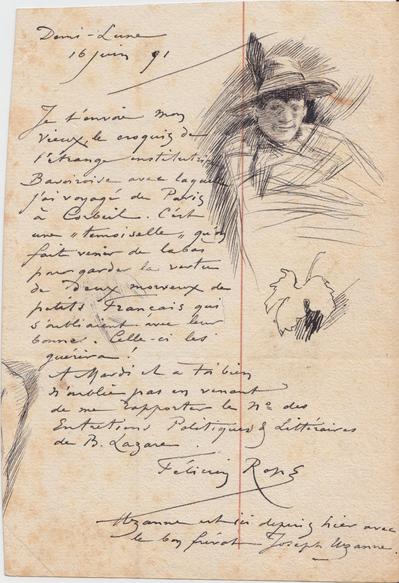 Demi-Lune
16 juin 91
Je t'envoie mon
vieux, le croquis de
l'étrange institutrice
Bavaroise avec laquelle
j'ai voyagé de Paris
à Corbeil. C'est
une "temoiselle" qu'on
fait venir de labas
pour garder la vertu
de deux morveux de
petits Français qui
s'oubliaient avec leur
bonne. Celle-ci les
guérira!
A Mardi et à toi bien
n'oublie pas en venant
de me rapporter le No des
Entretiens Politiques & Littéraires
de B. Lazare.
Félicien Rops
Uzanne est ici depuis hier avec
le bon frérot Joseph Uzanne.